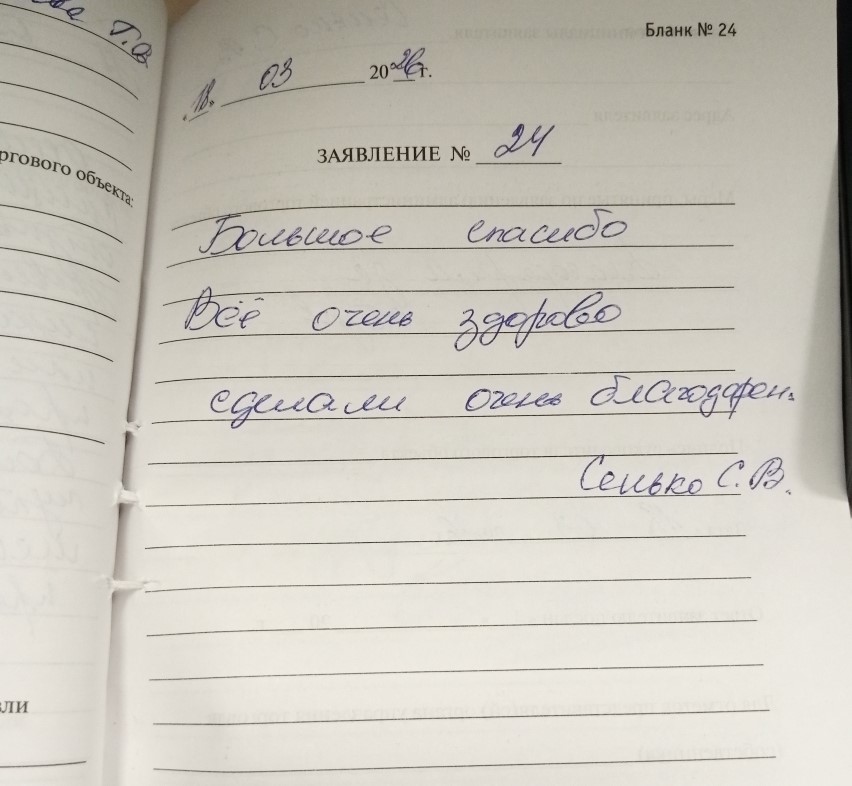 Г.В.
ргового объекта:
вли
Бланк № 24
„18" 03 2026 г.
ЗАЯВЛЕНИЕ № 24
Большое спасибо
Всё очень здорово
сделали очень благодарен.
Сенько С.В.